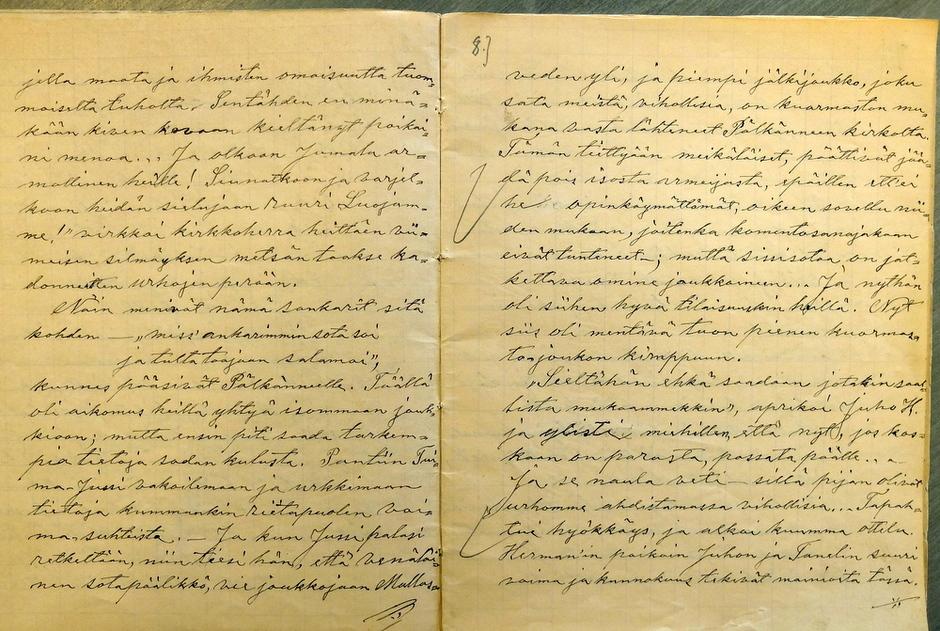 jella maata ja ihmisten omaisuutta tuom-
moiselta tuholta. Sentähden en minä-
kään kiven kovaan kieltänyt poikai-
ni menoa... Ja olkoon Jumala ar-
mollinen heille! Siunatkoon ja varjel-
koon heidän sielujaan suuri Luojam-
me!" virkkoi kirkkoherra heittäen vii-
meisen silmäyksen metsän taakse ka-
donneitten urhojen perään.
Näin menivät nämä sankarit sitä
kohden — „miss' ankarimmin sota soi
ja tulta taajaan salamoi",
kunnes pääsivät Pälkäneelle. Täällä
oli aikomus heillä yhtyä isommaan jouk-
kioon; mutta ensin piti saada tarkem-
pia tietoja sodan kulusta. Pantiin Tui-
ma-Jussi vakoilemaan ja urkkimaan
tietoja kummankin riitapuolen voi-
ma-suhteista. — Ja kun Jussi palasi
retkeltään, niin tiesi hän, että venäläi-
nen sotapäälikkö, vie joukkojaan Mallas-
8.)
veden yli, ja piempi jälkijoukko, joku
sata meistä, vihollisia, on kuormaston mu-
kana vasta lähteneet Pälkänneen kirkolta.
Tämän tiettyään meikäläiset, päättivät jää-
dä pois isosta armeijasta, epäillen ettei
he opinkäymättömät, oikeen sovellu nii-
den mukaan, joitenka komentosanojakaan
eivät tunteneet —; mutta sissisotaa on jat-
kettava omine joukkoineen... Ja nythän
oli siihen hyvä tilaisuuskin heillä. Nyt
siis oli mentävä tuon pienen kuormas-
tojoukon kimppuun.
„Sieltähän ehkä saadaan jotakin saal-
lista mukaammekkin", aprikoi Juho H.
ja miehillen, että nyt, jos kos-
kaan on parasta, passata päälle...
Ja se naula veti — sillä pijan olivat
urhomme ahdistamassa vihollisia... Tapah-
tui hyökkäys, ja alkoi kuumma ottelu.
Herman'in poikain Juhon ja Tanelin suuri
voima ja kunnokuus tekivät mainiosta tässä.